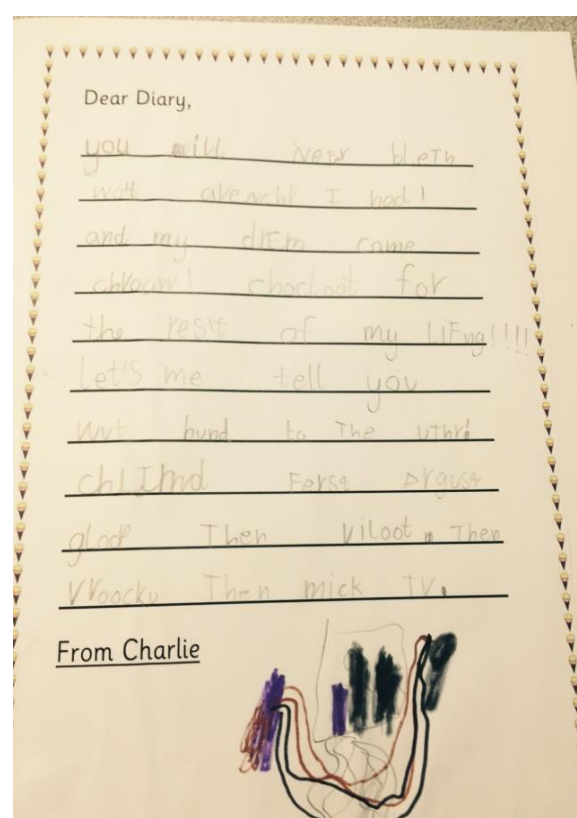 Dear Diary,
you will newr bleth
wot avencht I had!
and my drem came
chroow! chocloot for
the resit of my LIFng!!!!
Let's me tell you
wut hund to The uthr!
chlImd Ferst Argust
gloop Then Viloot. Then
Vroocku Then mick TV.
From Charlie